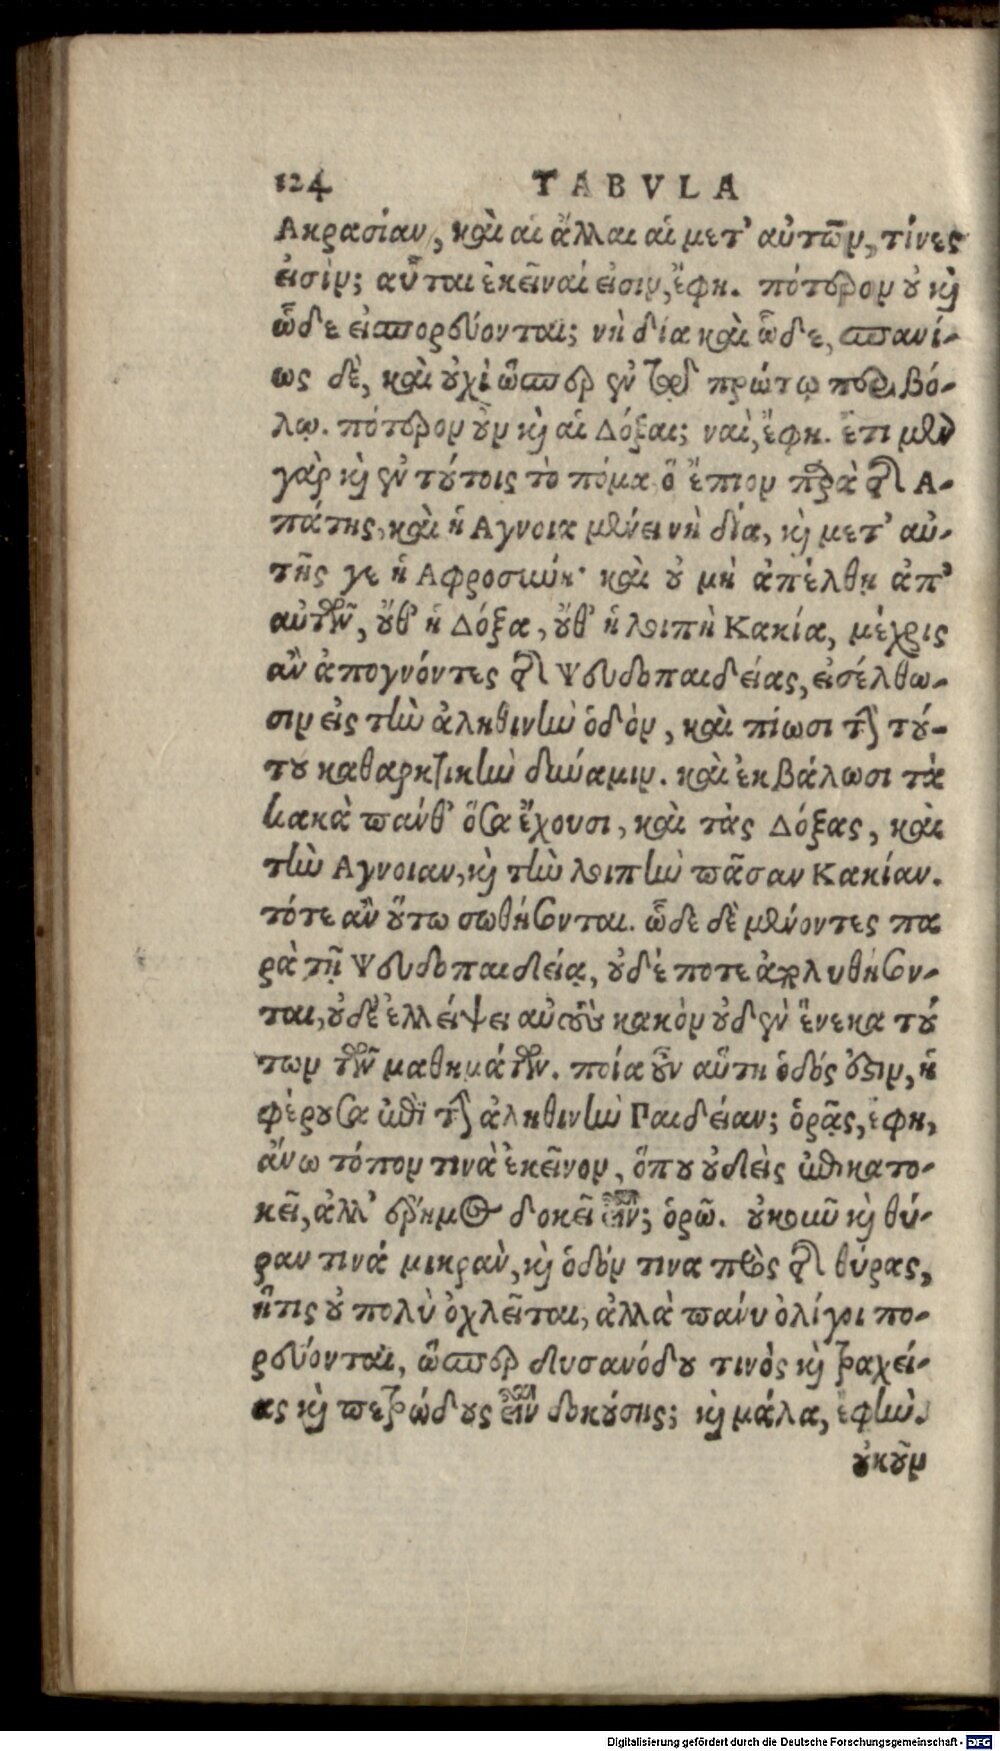 124 TABVLA
Ακρασίαν, καὶ αἱ ἄλλαι αἱ μετ' αὐτῶν, τίνες
εἰσὶν; αὗται ἐκεῖναί εἰσιν, ἔφη. πότερον οὐ καὶ
ὧδε εἰσπορεύονται; νὴ δία καὶ ὧδε, σπανί-
ως δὲ, καὶ οὐχὶ ὥσπερ ἐν τῷ πρώτῳ περιβό-
λῳ. πότερον οὖν καὶ αἱ Δόξαι; ναὶ, ἔφη. ἔτι μὲν
γὰρ καὶ ἐν τούτοις τὸ πόμα ὃ ἔπιον παρὰ τῆς Α-
πάτης, καὶ ἡ Αγνοια μένει νὴ δία, καὶ μετ' αὐ-
τῆς γε ἡ Αφροσύνη· καὶ οὐ μὴ ἀπέλθῃ ἀπ'
αὐτῶν, οὔθ' ἡ Δόξα, οὔθ' ἡ λοιπὴ Κακία, μέχρις
ἂν ἀπογνόντες τῆς Ψευδοπαιδείας, εἰσέλθω-
σιν εἰς τὴν ἀληθινὴν ὁδὸν, καὶ πίωσι τὴν τού-
του καθαρκτικὴν δύναμιν. καὶ ἐκβάλωσι τὰ
κακὰ πάνθ' ὅσα ἔχουσι, καὶ τὰς Δόξας, καὶ
τὴν Αγνοιαν, καὶ τὴν λοιπὴν πᾶσαν Κακίαν.
τότε ἂν οὕτω σωθήσονται. ὧδε δὲ μένοντες πα
ρὰ τῇ Ψευδοπαιδείᾳ, οὐδέποτε ἀπολυθήσον-
ται, οὐδὲ ἐλλείψει αὐτοὺς κακὸν οὐδὲν ἕνεκα τού
των τῶν μαθημάτων. ποία οὖν αὕτη ὁδός ἐστιν, ἡ
φέρουσα ἐπὶ τὴν ἀληθινὴν Παιδείαν; ὁρᾷς, ἔφη,
ἄνω τόπον τινὰ ἐκεῖνον, ὅπου οὐδεὶς ἐπικατο-
κεῖ, ἀλλ' ἔρημος δοκεῖ εἶναι; ὁρῶ. οὐκοῦν καὶ θύ-
ραν τινά μικρὰν, καὶ ὁδόν τινα πρὸς τῆς θύρας,
ἥτις οὐ πολὺ ὀχλεῖται, ἀλλὰ πάνυ ὀλίγοι πο-
ρεύονται, ὥσπερ δυσανόδου τινὸς καὶ τραχεί-
ας καὶ πετρώδους εἶναι δοκούσης; καὶ μάλα, ἔφην.
οὐκοῦν
Digitalisierung gefördert durch die Deutsche Forschungsgemeinschaft - DFG